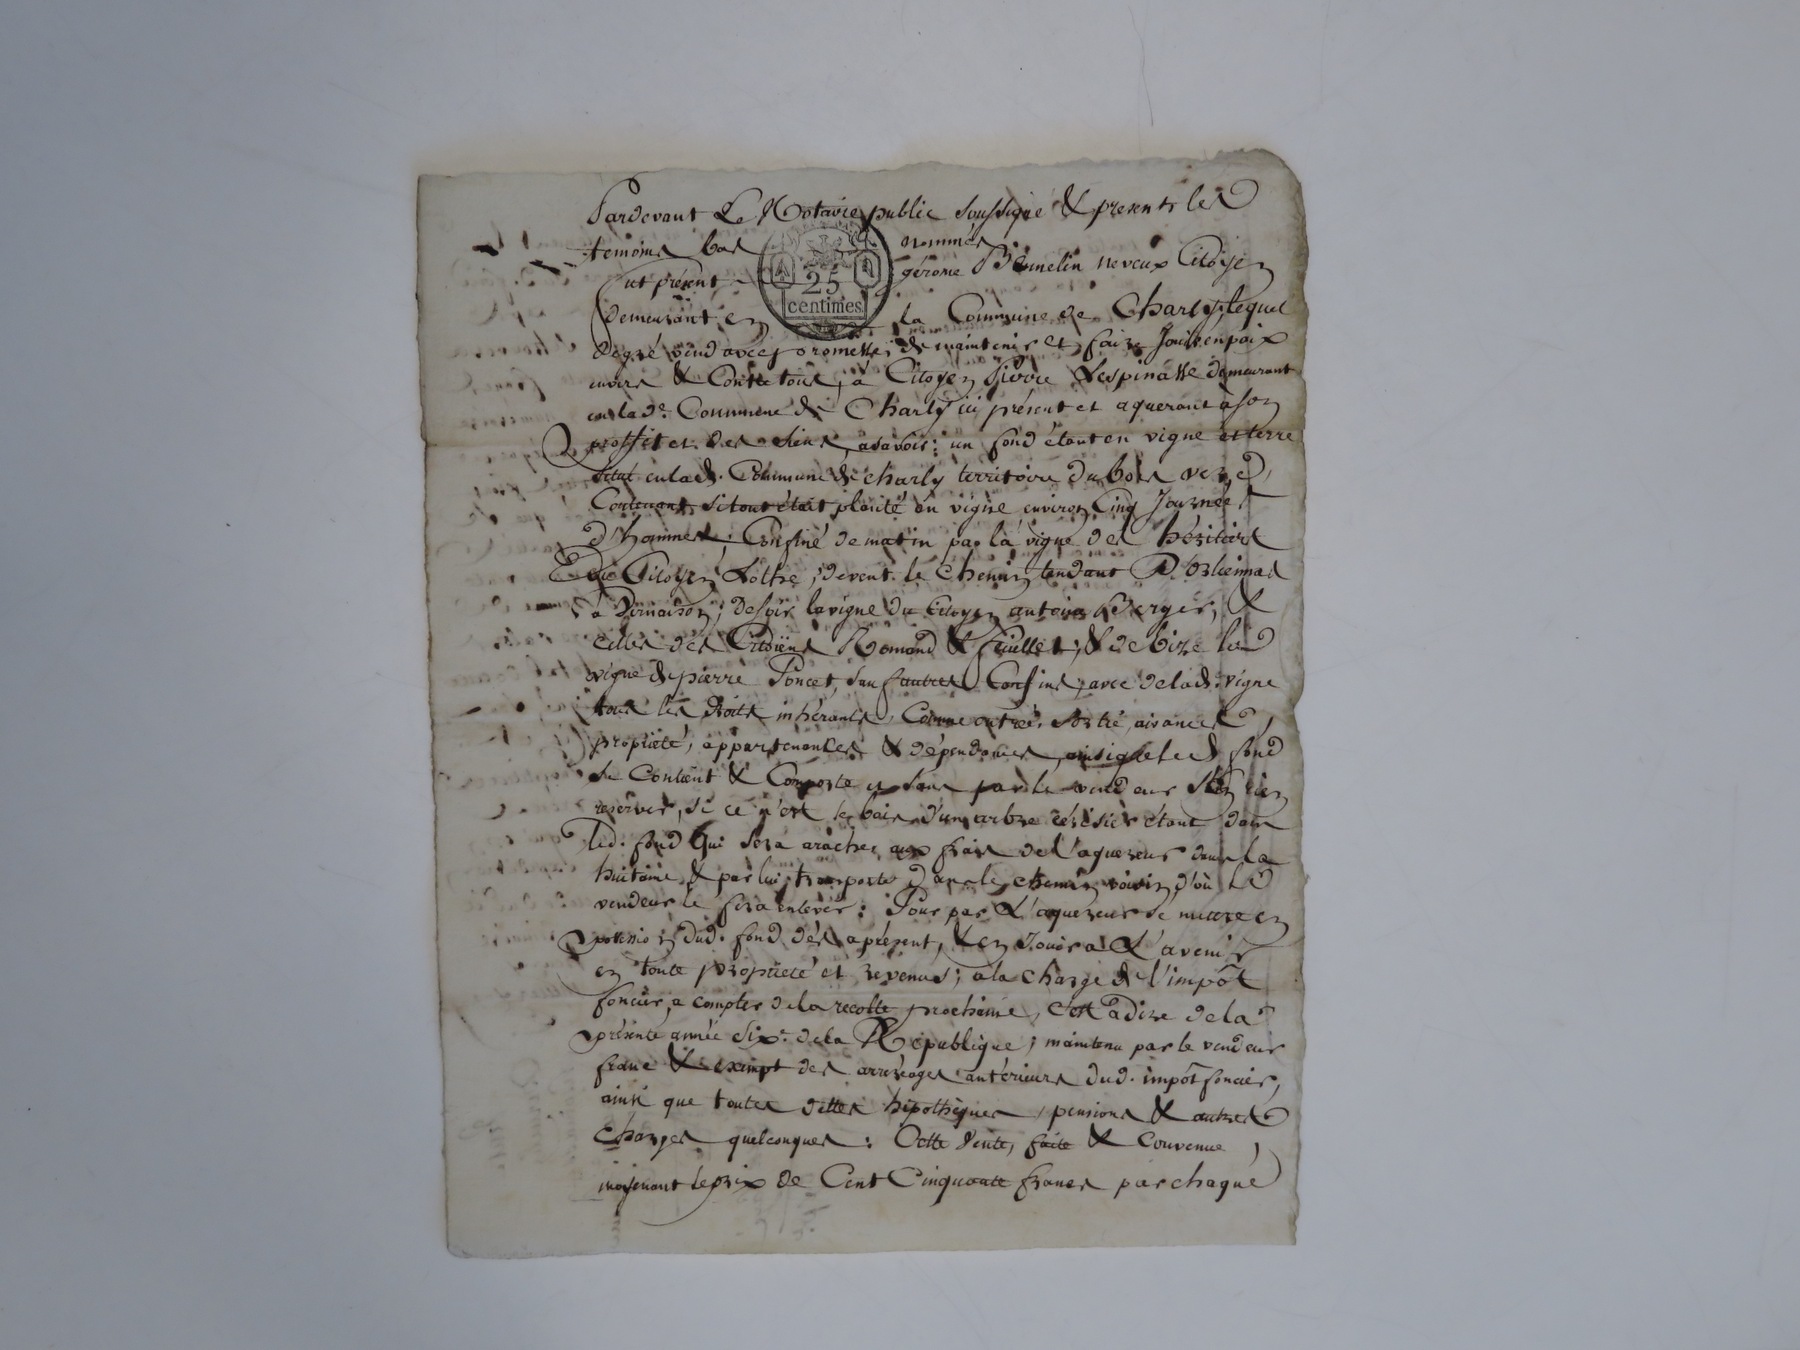 Pardevant Le Notaire public soussigné & presents les
temoins bas nommés
fut présent gérome Bemelin neveux Citoyen
25
centimes
demeurant en la Commune de Charly, lequel
degré vend avec promesse de maintenir et faire Jouir en paix
envers & Contre tous, a Citoyen pierre Lespinasse demeurant
en lade. Commune de Charly ici présent et aquerant a son
proffit et des siens, asavoir: un fond étant en vigne et terre
situé en lad. Commune de charly territoire du bois
Contenant si tout étoit planté en vigne environ Cinq Journées
d'hommes; Confiné de matin par la vigne des héritiers
Citoyen Lothe, de vent le chemin tendant D'orlienas
a Vernaison; de soir la vigne du Citoyen antoine Berger, &
celles des Citoïens Romand & ; & de bize la
vigne de pierre Poncet, sauf autres Confins, avec de lad. vigne
tous les droits inhérants, Comme entrée, sortie, aisances,
propriété, appartenances & dépendances, ainsi que led fond
se Contient & Comporte et sans par le vendeur s'en rien
reserver, si ce n'est le bois d'un arbre cérisier étant dans
led. fond qui sera araché aux frais de l'aquereur dans la
huitaine, & par lui transporté dans le chemin voisin d'où le
vendeur le fera enlever: Pour par L'aquereur se mettre en
possession dud. fond dès a présent, & en Jouir a L'avenir
en toute propriété et revenus; a la charge de l'impôt
foncier, a compter de la recolte prochaine, c'est a dire de la
présente année sixe. de la République; maintenu par le vendeur
franc & exempt des arrérages antérieurs dud. impôt foncier,
ainsi que toutes dettes hipothèques, pensions & autres
charges quelconques: Cette Vente, faite & Convenue,
moyenant le prix de Cent Cinquante francs par chaque